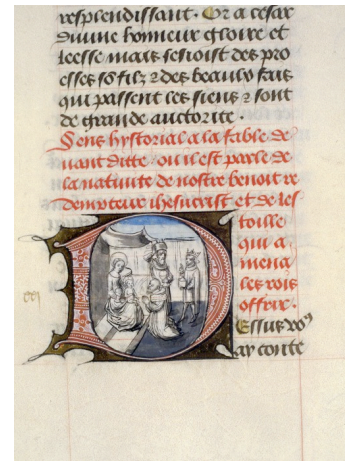 resplendissant. Or a cesar
diuine honneur gloire et
leesse mais sesioist des pro
esses sō filz ⁊ des beaulx fais
qui passent les siens ⁊ sont
de grande auctorite.
Sens hystorial a la fable de
uant ditte. ou il est parle de
la natiuite de nostre benoit re
dempteur ihesucrist et de les
toille
qui a
mena
les rois
offrir.
DEssus voꝰ
ay conte